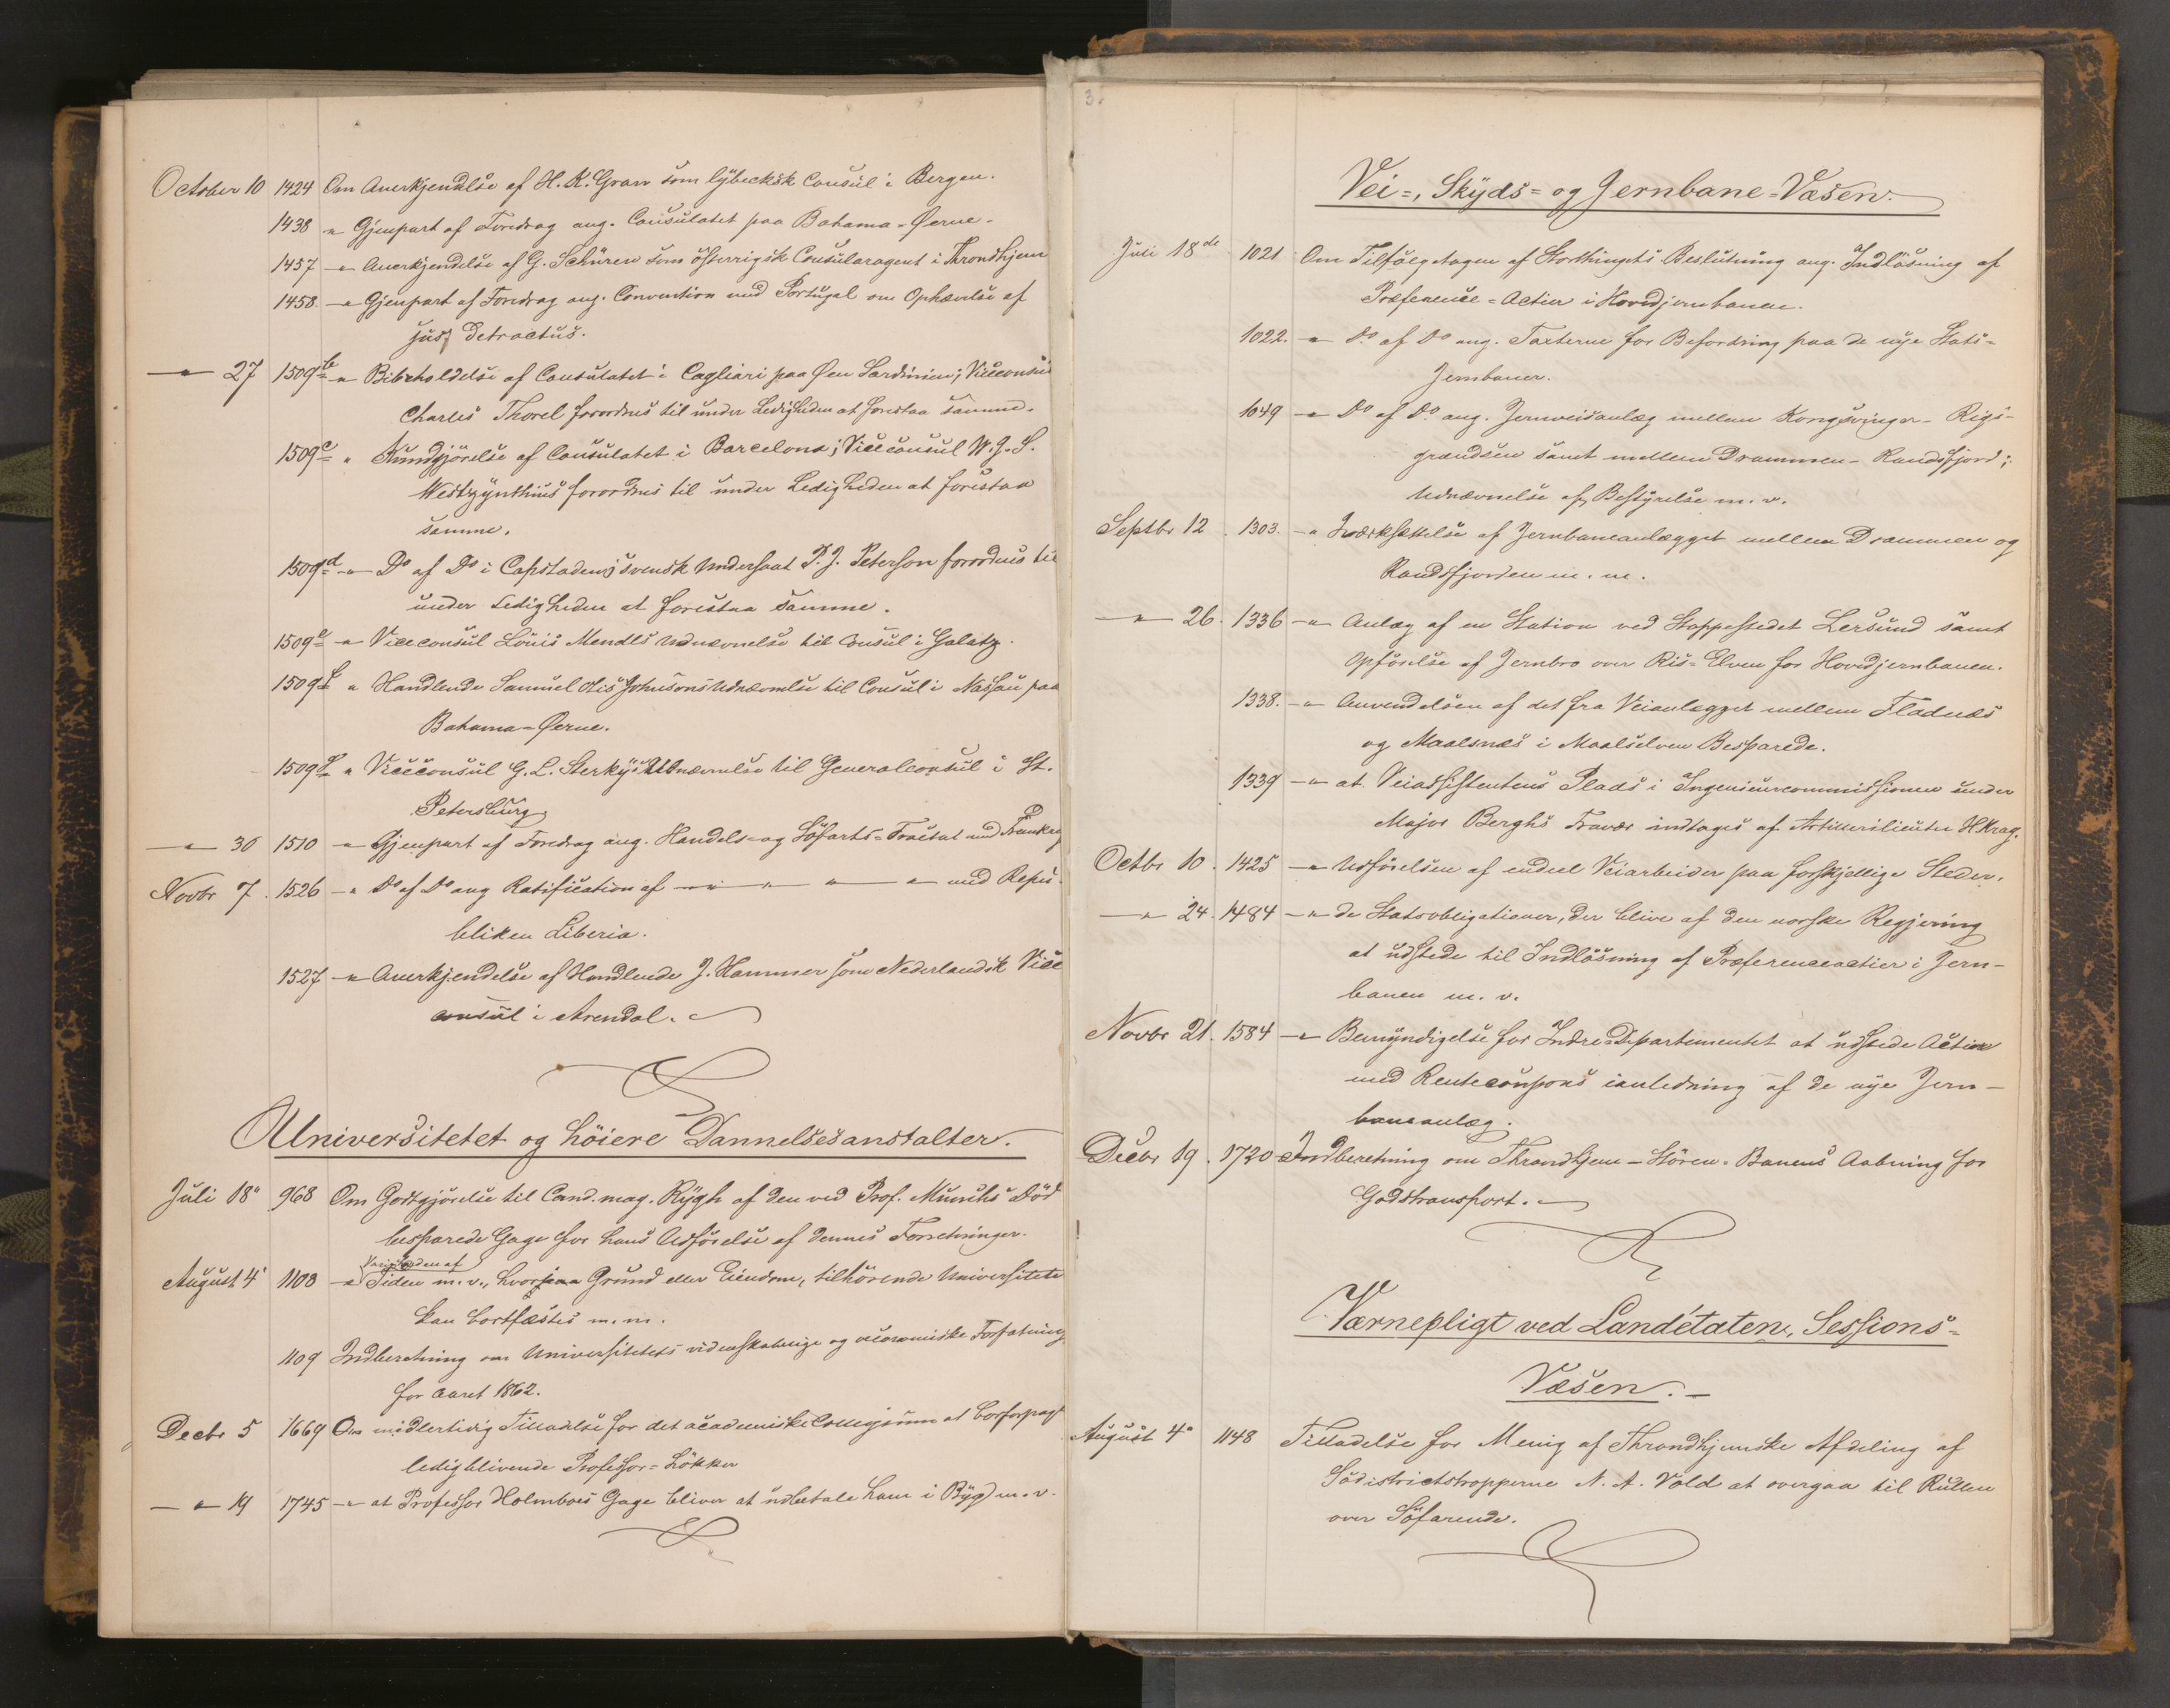 October 10 1424 Om Anerkjendelse af H. K. Gran som lybecksk Consul i Bergen.
1438 " Gjenpart af Foredrag ang. Consulatet paa Bahama-Øerne.
1457 " Anerkjendelse af G. Schüren som österrigsk Consularagent i Throndhjem
1458. " Gjenpart af Foredrag ang. Convention med Portugal om Ophævelse af
jus detractus.
" 27 1509b " Bibeholdelse af Consulatet i Cagliari paa Øen Sardinien; Viceconsul
Charles Thorel forordnes til under Ledigheden at forestaa samme.
1509c " Kundgjörelse af Consulatet i Barcelona; Viceconsul W. J. S.
Westzynthius forordnes til under Ledigheden at forestaa
samme.
1509d " Do af Do i Capstaden; svensk Undersaat P. J. Peterson forordnes til
under Ledigheden at forestaa samme.
1509e " Viceconsul Louis Mendls Udnævnelse til Consul i Galatz.
1509f " Handlende Samuel Otis Johnsons Udnævnelse til Consul i Nassau paa
Bahama-Øerne.
1509g " Viceconsul G. L. Sterkys Udnævnelse til Generalconsul i St.
Petersburg
" 30 1510 " Gjenpart af Foredrag ang. Handels- og Söfarts-Tractat med Frankrig
Novbr 7. 1526 " Do af Do ang Ratification af " " " " med Repu-
bliken Liberia.
1527 " Anerkjendelse af Handlende J. Hammer som Nederlandsk Vice
consul i Arendal.
Universitetet og höiere Dannelsesanstalter.
Juli 18" 968 Om Godtgjörelse til Cand. mag. Rygh af den ved Prof. Munchs Död
besparede Gage for hans Udförelse af dennes Forretninger.
Varigheden af
August 4" 1108 " Tiden m. v., hvorpaa Grund eller Eiendom, tilhörende Universitetet
kan bortfæstes m. m.
1109 Indberetning om Universitetets videnskabelige og oeconomiske Forfatning
for Aaret 1862.
Decbr 5 1669 Om midlertidig Tilladelse for det academiske Collegium at bortforpagte
ledigblivende Professor-Lökker
" 19 1745 " at Professor Holmboes Gage bliver at udbetale ham i Byg m. v.
3.
Vei-, Skyds- og Jernbane-Væsen.
Juli 18de 1021 Om Tilfölgetagen af Storthingets Beslutning ang. Indlösning af
Præference-Actier i Hovedjernbanen.
1022. " Do af Do ang. Taxterne for Befordring paa de nye Stats-
Jernbaner.
1049 " Do af Do ang. Jernveisanlæg mellem Kongsvinger-Rigs-
grændsen samt mellem Drammen-Randsfjord;
Udnævnelse af Bestyrelse m. v.
Septbr 12. 1303. " Iværksættelse af Jernbaneanlægget mellem Drammen og
Randsfjorden m. m.
" 26. 1336 " Anlæg af en Station ved Stoppestedet Lersund samt
Opförelse af Jernbro over Ris-Elven for Hovedjernbanen.
1338. " Anvendelsen af det fra Veianlægget mellem Fladnæs
og Maalsnæs i Maalselven Besparede.
1339 " at Veiassistentens Plads i Ingenieurcommissionen under
Major Berghs Fravær indtages af Artillerilieutn H Krag.
Octbr 10. 1425 " Udförelsen af endeel Veiarbeider paa forskjellige Steder.
" 24. 1484 " de Statsobligationer, der blive af den norske Regjering
at udstede til Indlösning af Præferenceactier i Jern-
banen m. v.
Novbr 21. 1584 " Bemyndigelse for Indre-Departementet at udstede Actier
med Rentecoupons i anledning af de nye Jern-
baneanlæg.
Decbr 19. 1720 Indberetning om Throndhjem-Stören-Banens Aabning for
Godstransport.
Værnepligt ved Landetaten, Sessions-
Væsen.
August 4" 1148 Tilladelse for Menig af Throndhjemske Afdeling af
Södistrictstropperne N. A. Vold at overgaa til Rullen
over Söfarende.